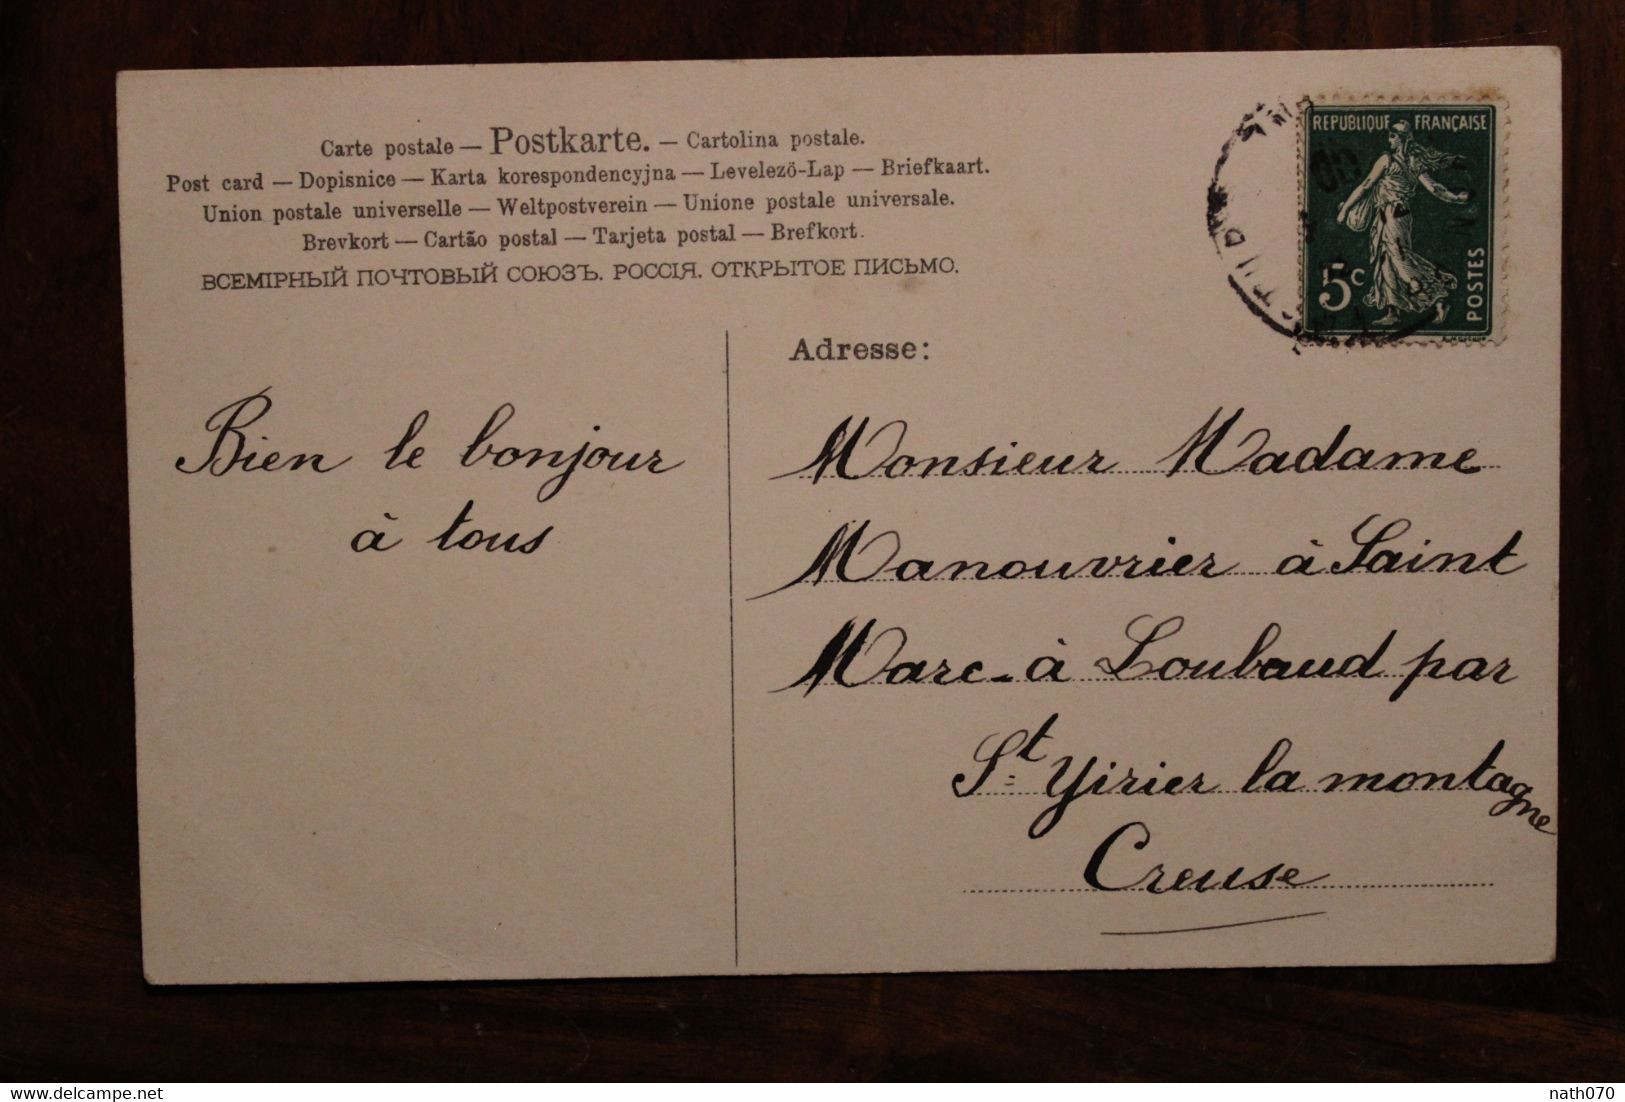 Carte postale — Postkarte. — Cartolina postale.
Post card — Dopisnice — Karta korespondencyjna — Levelezö-Lap — Briefkaart.
Union postale universelle — Weltpostverein — Unione postale universale.
Brevkort — Cartão postal — Tarjeta postal — Brefkort.
ВСЕМІРНЫЙ ПОЧТОВЫЙ СОЮЗЪ. РОССІЯ. ОТКРЫТОЕ ПИСЬМО.
REPUBLIQUE FRANÇAISE
5c
POSTES
Adresse:
Bien le bonjour
à tous
Monsieur Madame
Manouvrier à Saint
Marc-à Loubaud par
St Yirier la montagne
Creuse
delcampe.net
nath070